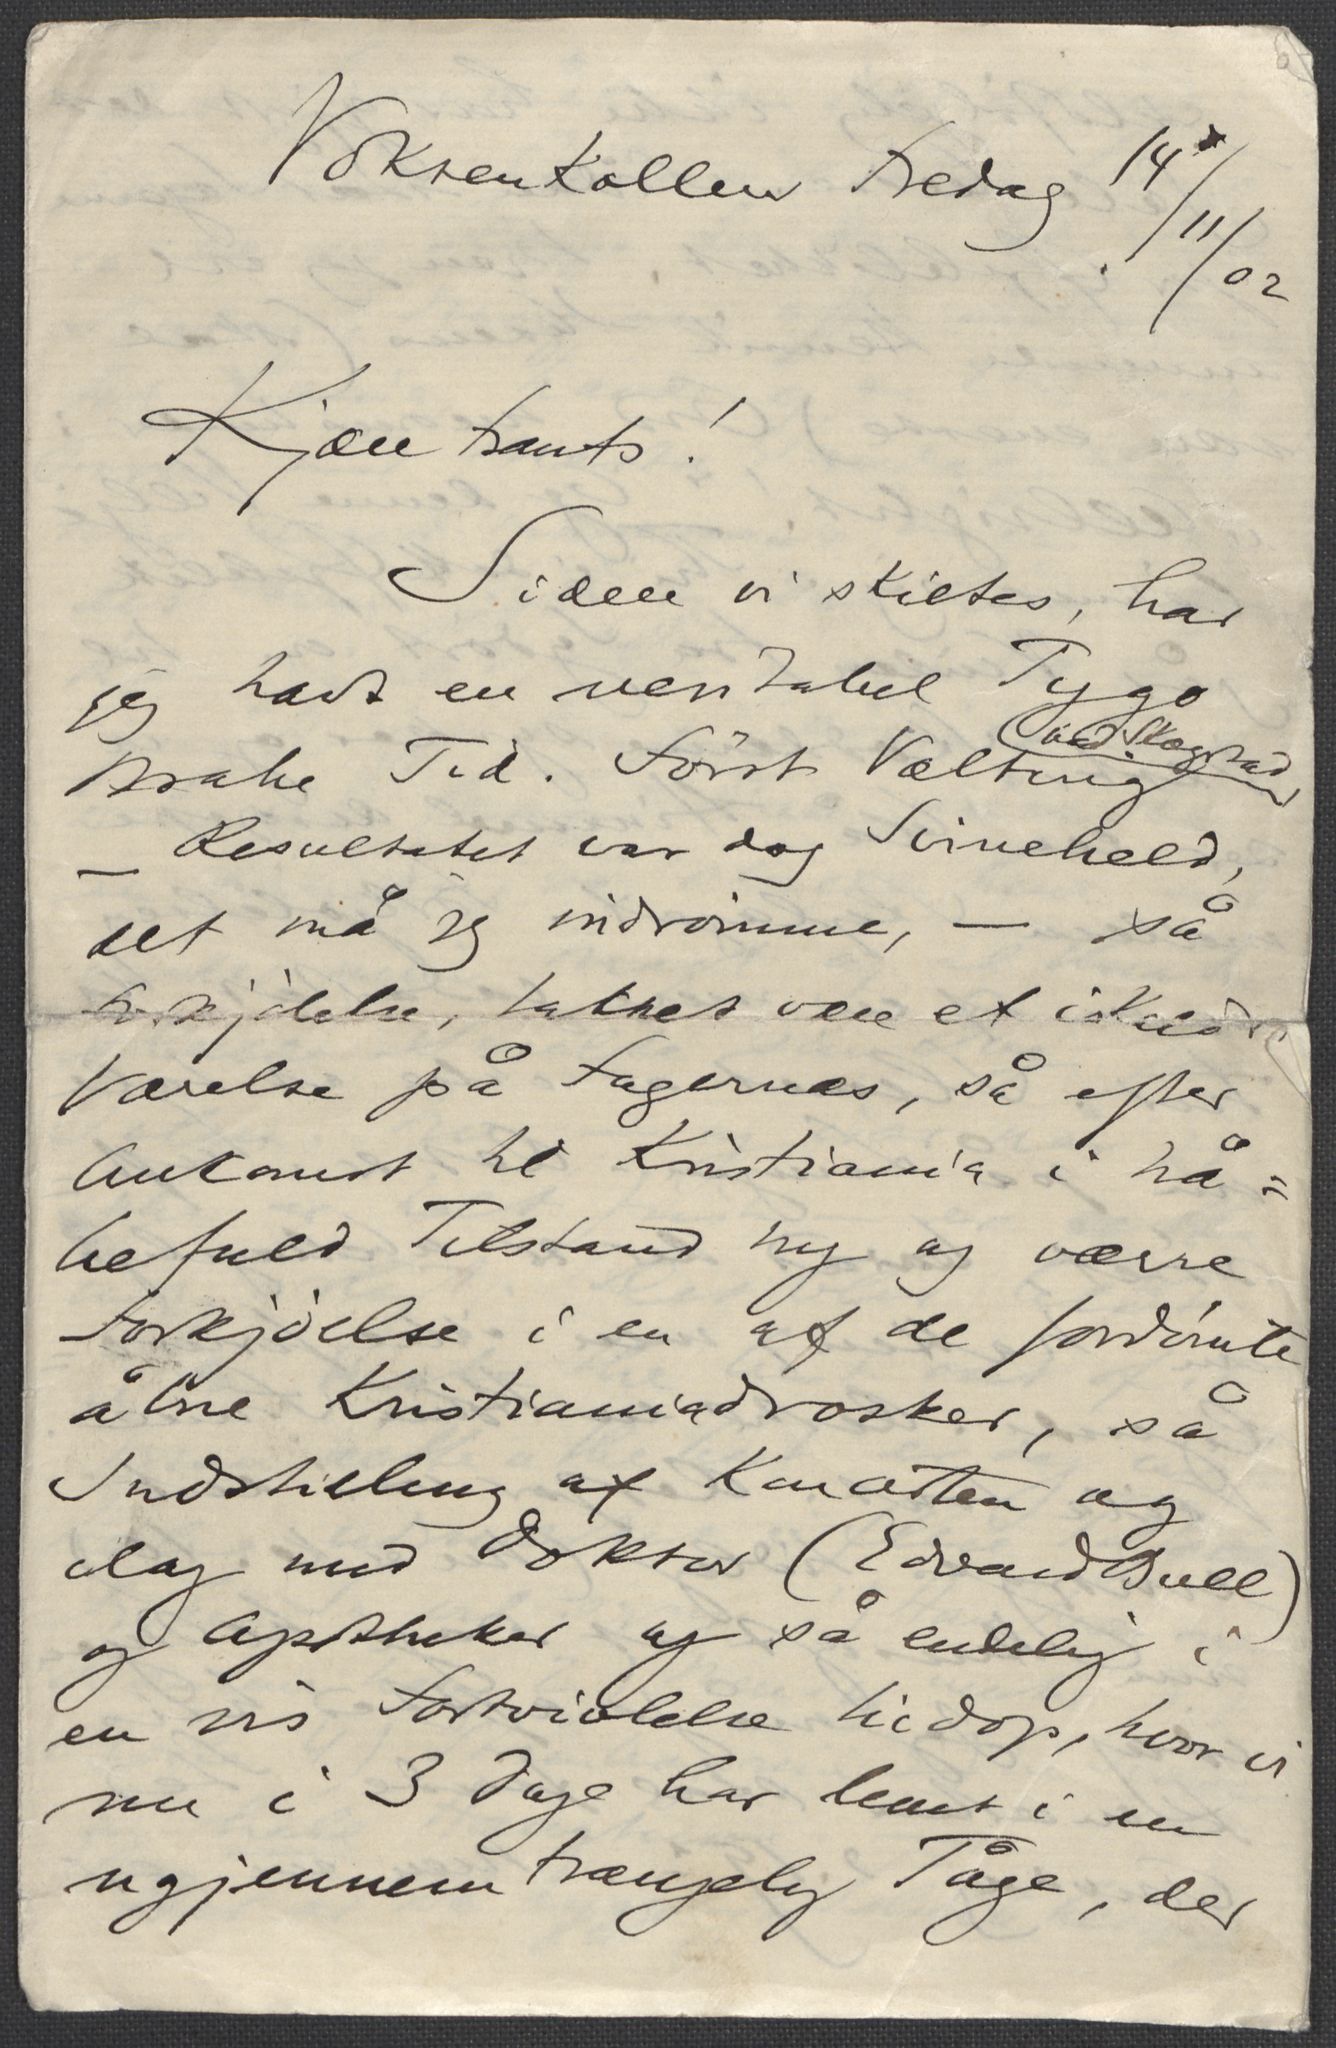 Voksenkollen Fredag 14/11/02
Kjære Frants!
Siden vi skiltes, har
jeg havt en veritabel Tygo
Brahe Tid. Først Væltning (ved Skogstad)
– Resultatet var dog Svineheld,
det må jeg indrømme, – så
Forkjølelse, takket være et iskoldt
Værelse på Fagernæs, så efter
Ankomst til Kristiania i hå=
befuld Tilstand ny og værre
Forkjølelse i en af de fordømte
åbne Kristianiadrosker, så
Indstilling af Koncerten og
Dag med Doktor (Edvard Bull)
og Apotheker og så endelig i
en vis Fortvivlelse hidop, hvor vi
nu i 3 Dage har levet i en
ugjennemtrængelig Tåge, der